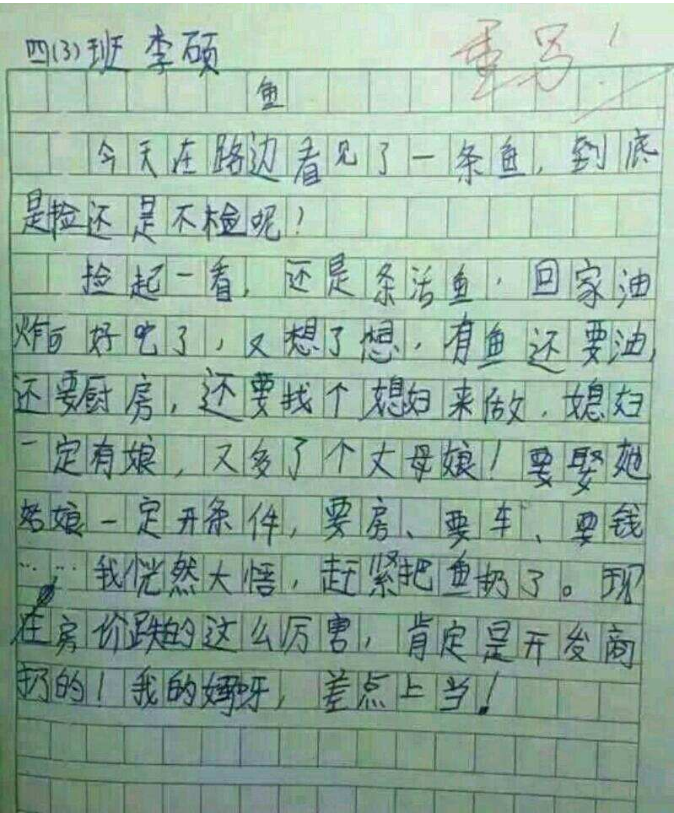 四(3)班 李硕
重写!
鱼
今天在路边看见了一条鱼,到底
是捡还是不捡呢!
捡起一看,还是条活鱼,回家油
炸可好吃了,又想了想,有鱼还要油,
还要厨房,还要找个媳妇来做,媳妇
一定有娘,又多了个丈母娘!要娶她
姑娘一定开条件,要房、要车、要钱
……我恍然大悟,赶紧把鱼扔了。现
在房价跌的这么厉害,肯定是开发商
扔的!我的妈呀,差点上当!